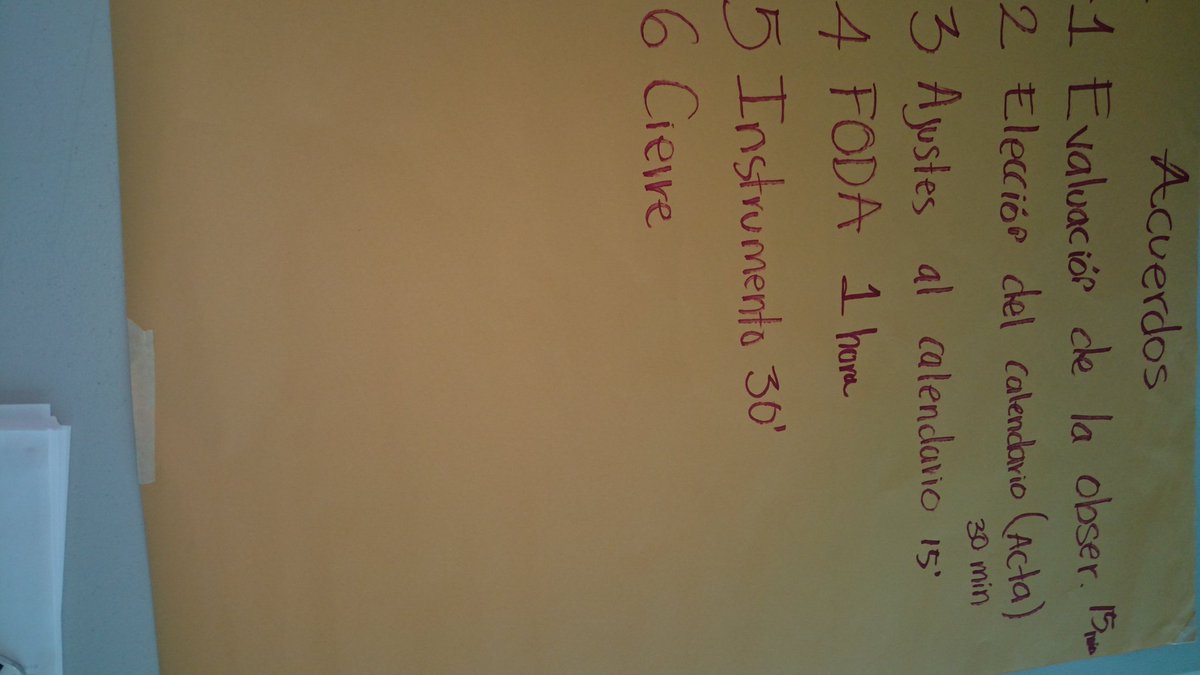 Acuerdos
1 Evaluación de la obser. 15 min
2 Elección del calendario (Acta)
30 min
3 Ajustes al calendario 15'
4 FODA 1 hora
5 Instrumento 30'
6 Cierre